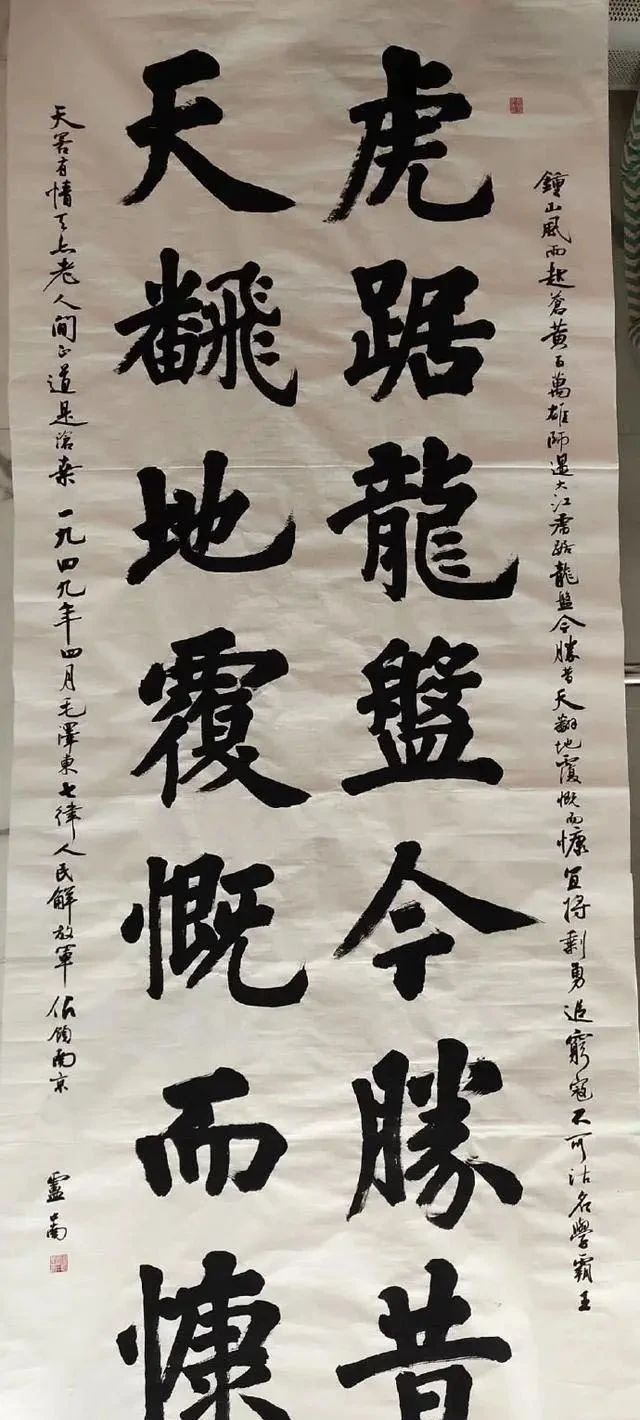 鍾山風雨起蒼黃百萬雄師過大江虎踞龍盤今勝昔天翻地覆慨而慷宜將剩勇追窮寇不可沽名學霸王
虎踞龍盤今勝昔
天飜地覆慨而慷
天若有情天亦老人間正道是滄桑 一九四九年四月毛澤東七律人民解放軍佔領南京
盧